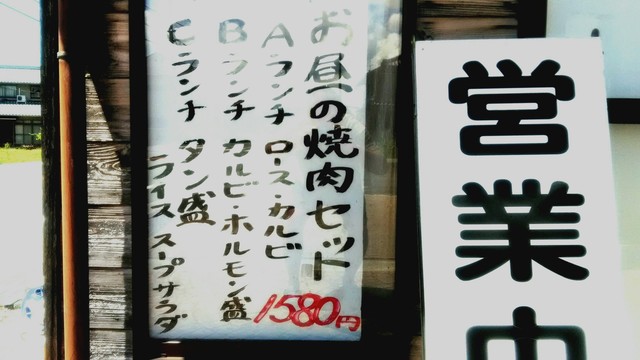 営業中
お昼の焼肉セット
Aランチ ロース・カルビ
Bランチ カルビ・ホルモン盛
Cランチ タン盛
ライス スープサラダ
1580円